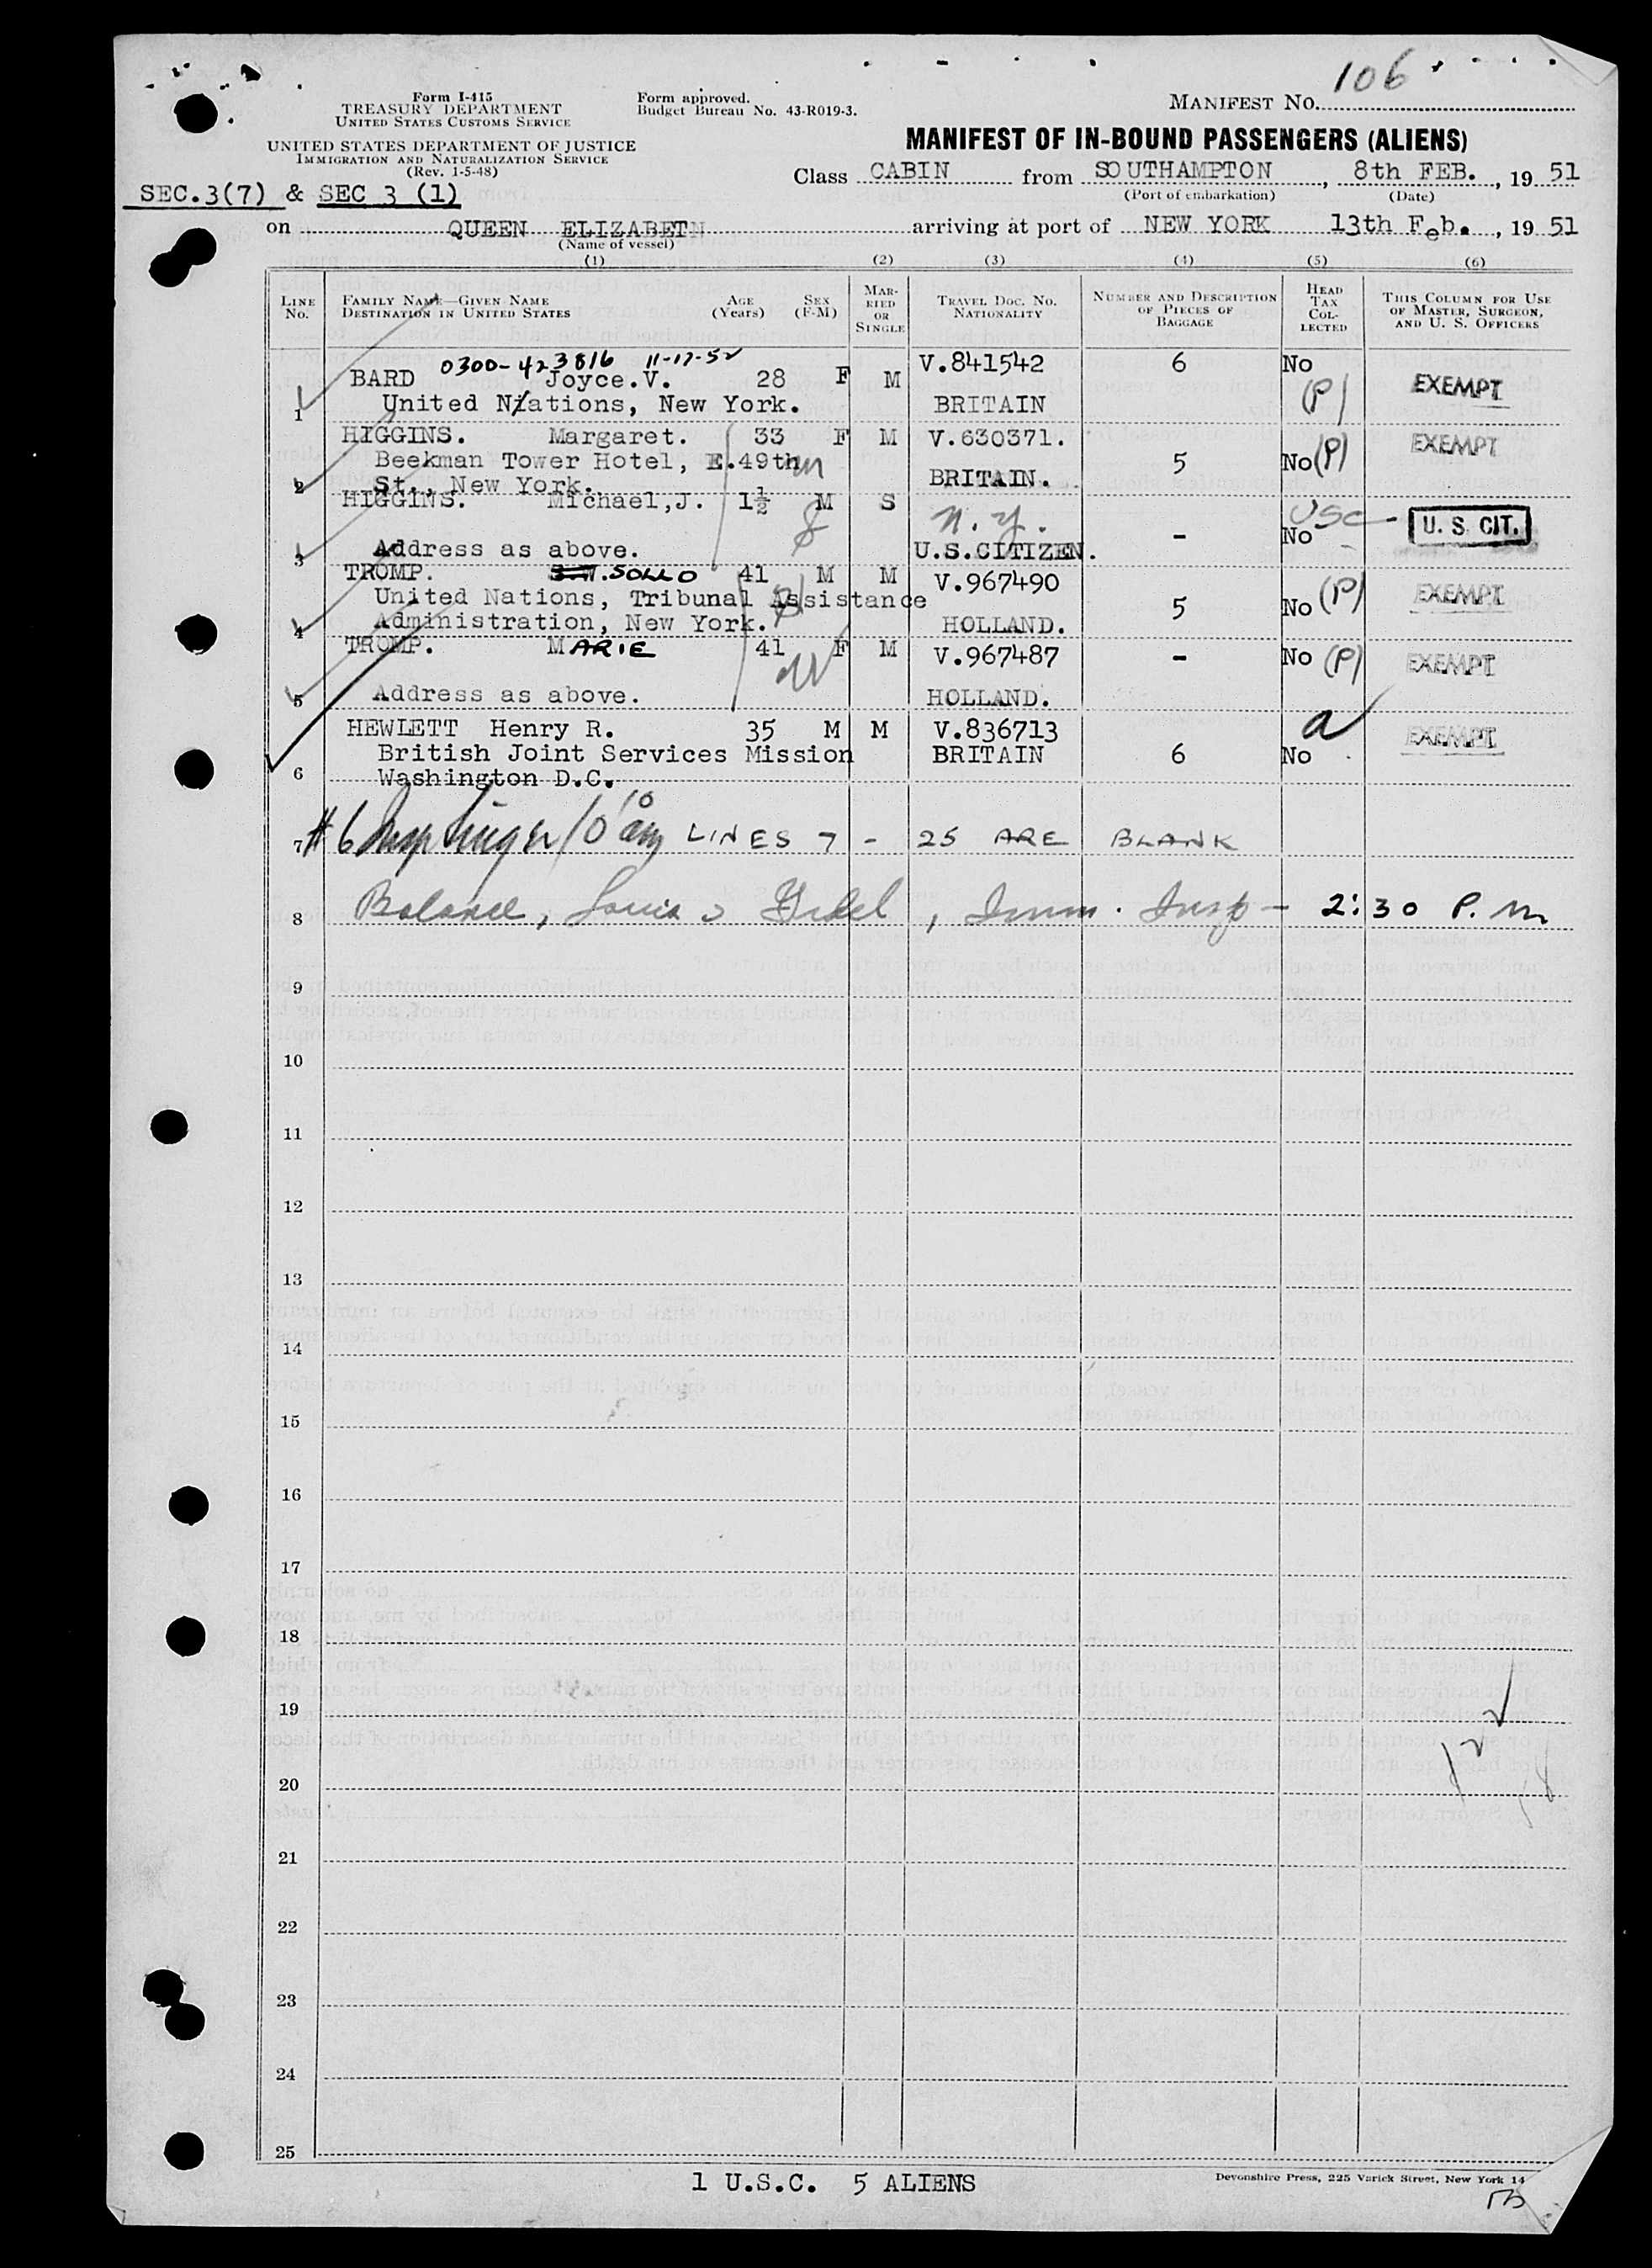 106
Form I-415
TREASURY DEPARTMENT
UNITED STATES CUSTOMS SERVICE
Form approved.
Budget Bureau No. 43-R019-3.
MANIFEST NO.
UNITED STATES DEPARTMENT OF JUSTICE
IMMIGRATION AND NATURALIZATION SERVICE
(Rev. 1-5-48)
MANIFEST OF IN-BOUND PASSENGERS (ALIENS)
Class CABIN from SOUTHAMPTON, 8th FEB., 19 51
(Port of embarkation) (Date)
SEC.3(7) & SEC 3 (1)
on QUEEN ELIZABETH arriving at port of NEW YORK 13th Feb., 19 51
(Name of vessel)
(1) (2) (3) (4) (5) (6)
LINE NO. FAMILY NAME—GIVEN NAME DESTINATION IN UNITED STATES AGE (YEARS) SEX (F-M) MARRIED OR SINGLE TRAVEL DOC. NO. NATIONALITY NUMBER AND DESCRIPTION OF PIECES OF BAGGAGE HEAD TAX COLLECTED THIS COLUMN FOR USE OF MASTER, SURGEON, AND U. S. OFFICERS
0300-423816 11-17-52
BARD Joyce.V. 28 F M V.841542 6 No EXEMPT
1 United N/ations, New York. BRITAIN (P)
HIGGINS. Margaret. 33 F M V.630371. EXEMPT
Beekman Tower Hotel, E.49th 5 No (P)
2 St., New York. BRITAIN.
HIGGINS. Michael,J. 1½ M S N.Y. USC U. S. CIT.
3 Address as above. U.S.CITIZEN. - No
TROMP. S.W. SOLLO 41 M M V.967490 EXEMPT
United Nations, Tribunal Assistance 5 No (P)
4 Administration, New York. HOLLAND.
TROMP. MARIE 41 F M V.967487 - No (P) EXEMPT
5 Address as above. HOLLAND.
HEWLETT Henry R. 35 M M V.836713 a EXEMPT
British Joint Services Mission BRITAIN 6 No
6 Washington D.C.
7 #6 Insp 10 10 am LINES 7 - 25 ARE BLANK
8 Balance, Louis Imm. Insp - 2:30 P.M
9
10
11
12
13
14
15
16
17
18
19
20
21
22
23
24
25
1 U.S.C. 5 ALIENS
Devonshire Press, 225 Varick Street, New York 14